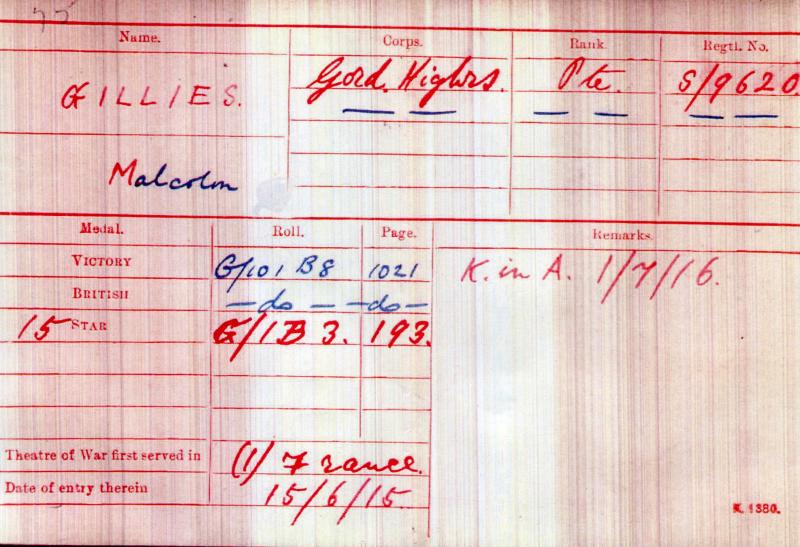 77
Name. Corps. Rank. Regtl. No.
GILLIES. Gord. Highrs. Pte. S/9620
Malcolm
Medal. Roll. Page. Remarks.
VICTORY G/101 B8 1021 K. in A. 1/7/16.
BRITISH — do — — do —
15 STAR G/1 B 3. 193.
Theatre of War first served in (1) France.
Date of entry therein 15/6/15.
K. 1380.